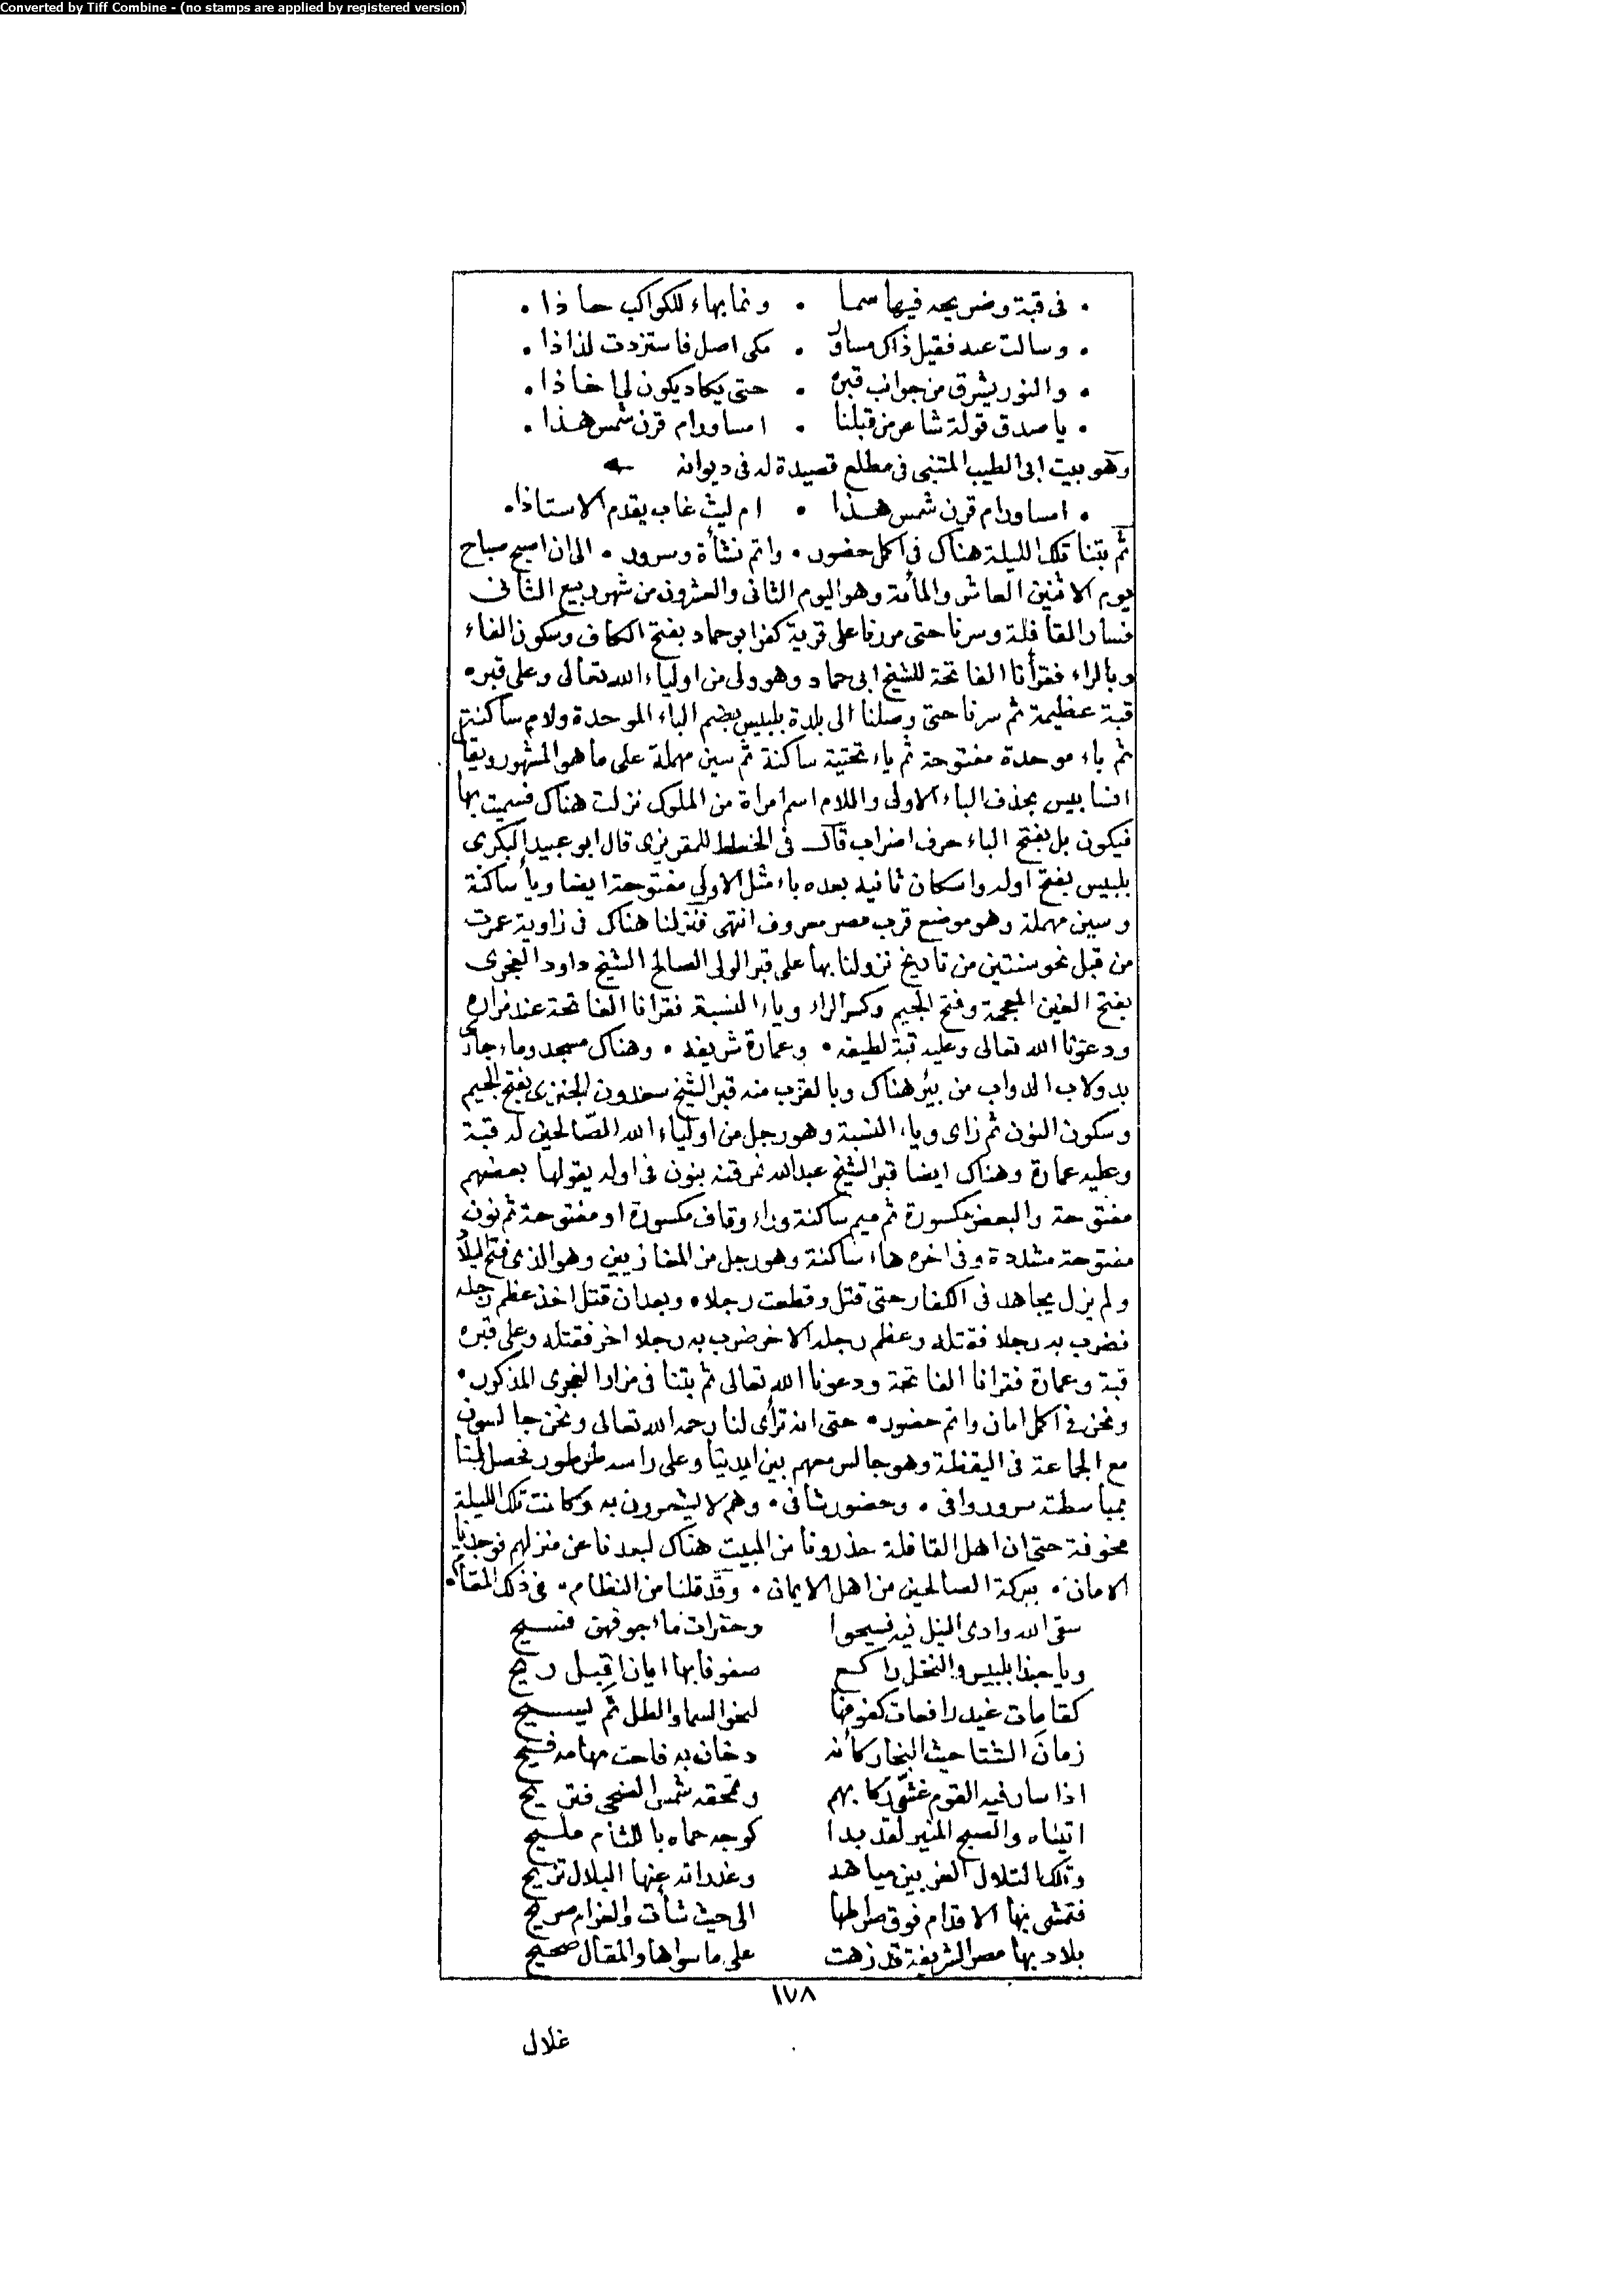 Converted by Tiff Combine - (no stamps are applied by registered version)
• فى قبة وضريحه فيها سما • ونما بهاء للكواكب حاذا •
• وسالت عنه فقيل ذاك مساور • مكى اصل فاستزدت لذاذا •
• والنور يشرق من جوانب قبره • حتى يكاد يكون لى اخاذا •
• يا صدق قولة شاعر من قبلنا • امساور ام قرن شمس هذا •
وهو بيت ابى الطيب المتنبى فى مطلع قصيدة له فى ديوانه
• امساور ام قرن شمس هذا • ام ليث غاب يقدم الاستاذا •
ثم بتنا تلك الليلة هناك فى اكمل حضور • واتم نشأة وسرور • الى ان اصبح صباح
يوم الاثنين العاشر والمأمة وهو اليوم الثانى والعشرون من شهر ربيع الثانى
فسار القافلة وسرنا حتى مررنا على قرية كفر ابو حماد بفتح الكاف وسكون الفاء
وبالراء فقرأنا الفاتحة للشيخ ابى حماد وهو ولى من اولياء الله تعالى وعلى قبره
قبة عظيمة ثم سرنا حتى وصلنا الى بلدة بلبيس بضم الباء الموحدة ولام ساكنة
ثم باء موحدة مفتوحة ثم ياء تحتية ساكنة ثم سين مهملة على ما هو المشهور ويقا
انما بيس بحذف الباء الاولى واللام اسم امراة من الملوك نزلت هناك فسميت بها
فيكون بل بفتح الباء حرف اضراب قال فى الخطط للمقريزى قال ابو عبيد البكرى
بلبيس بفتح اوله واسكان ثانيه بعده باء مثل الاولى مفتوحة ايضا ويأ ساكنة
وسين مهملة وهو موضع قرب مصر معروف انتهى فنزلنا هناك فى زاوية عمرت
من قبل نحو سنتين من تاريخ نزولنا بها على قبر الولى الصالح الشيخ داود الغجرى
بفتح الغين المعجمة وفتح الجيم وكسر الراء وياء النسبة فقرانا الفاتحة عند مزاره
ودعونا الله تعالى وعليه قبة لطيفه • وعمارة شريفه • وهناك مسجد وماء جارى
بدولاب الدواب من بئر هناك وبالقرب منه قبر الشيخ سعدون الجنزى بفتح الجيم
وسكون النون ثم زاى وياء النسبة وهو رجل من اولياء الله الصالحين له قبة
وعليه عمارة وهناك ايضا قبر الشيخ عبد الله نمرقنه بنون فى اوله يقولها بعضهم
مفتوحة والبعض مكسورة ثم ميم ساكنة وراء وقاف مكسورة او مفتوحة ثم نون
مفتوحة مشددة وفى اخره هاء ساكنة وهو رجل من المغازيين وهو الذى فتح البلاد
ولم يزل يجاهد فى الكفار حتى قتل وقطعت رجلاه وبعد ان قتل اخذ عظم رجله
فضرب به رجلا فقتله وعظم رجله الاخر ضرب به رجلا اخر فقتله وعلى قبره
قبة وعمارة فقرانا الفاتحة ودعونا الله تعالى ثم بتنا فى مزار الغجرى المذكور •
ونحن فى اكمل امان واتم حضور • حتى انه ترأى لنا رحمه الله تعالى ونحن جالسون
مع الجماعة فى اليقظة وهو جالس معهم بين ايدينا وعلى راسه طرطور فحصل لنا
بمباسطته سرور وافى • وحضور شافى • وهم لا يشعرون به وكانت تلك الليلة
مخوفة حتى ان اهل القافلة حذرونا من المبيت هناك لبعدنا عن منزلهم فوجدنا
الامان • ببركة الصالحين من اهل الايمان • وقد قلنا من النظام • فى ذلك المقام •
سقى الله وادى النيل فيه فسيحوا وحقرات ماء جوفهن فسيح
ويا حبذا بلبيس والنخل راكع صفوفا بها ايان اقبل ريح
كقامات غيد رافعات كفوفها لنحو السما والطل ثم يسيح
زمان الشتا حيث البخار كأنه دخان به فاحت مهامه فسيح
اذا سار فيه القوم غشى ركابهم وتمحقه شمس الضحى فتريح
اتيناه والصبح المنير لقد بدا كوجه حماه باللثام مليح
وتلك التلال العفر بين مياهه وغدرانه عنها البلال تزيح
فتمشى بها الاقدام فوق صراطها الى حيث شأت والغرام صريح
بلاد بها مصر الشريفة قد زهت على ما سواها والمقال صحيح
١٧٨
غلال